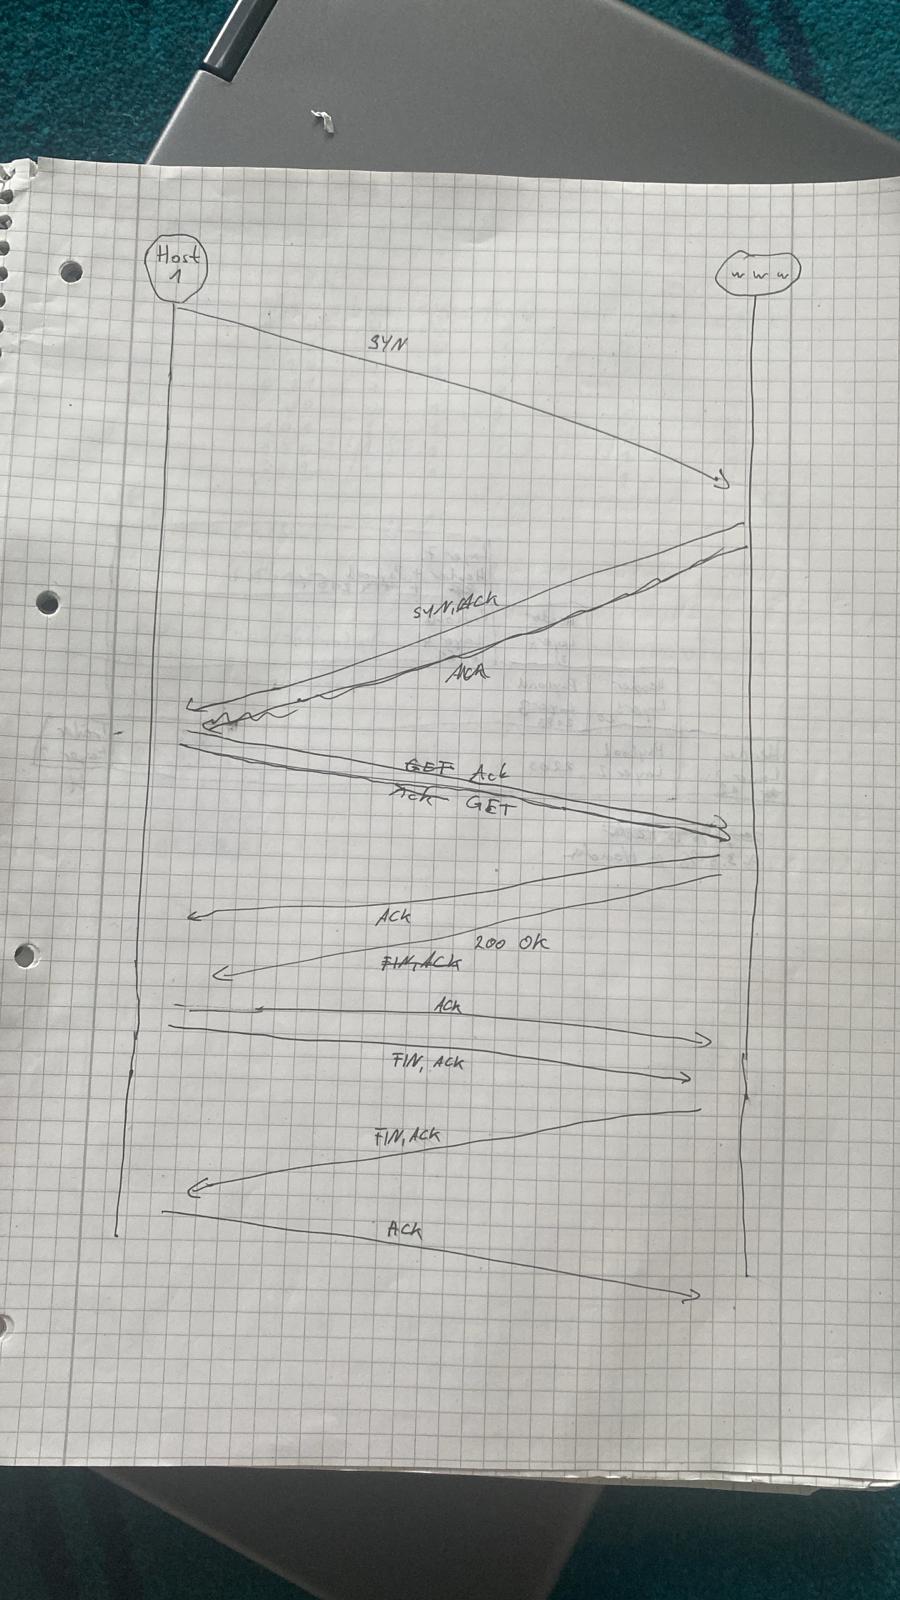 Host
1
w w w
SYN
SYN, ACK
ACK
GET Ack
Ack GET
ACK
200 OK
FIN, ACK
ACK
FIN, ACK
FIN, ACK
ACK